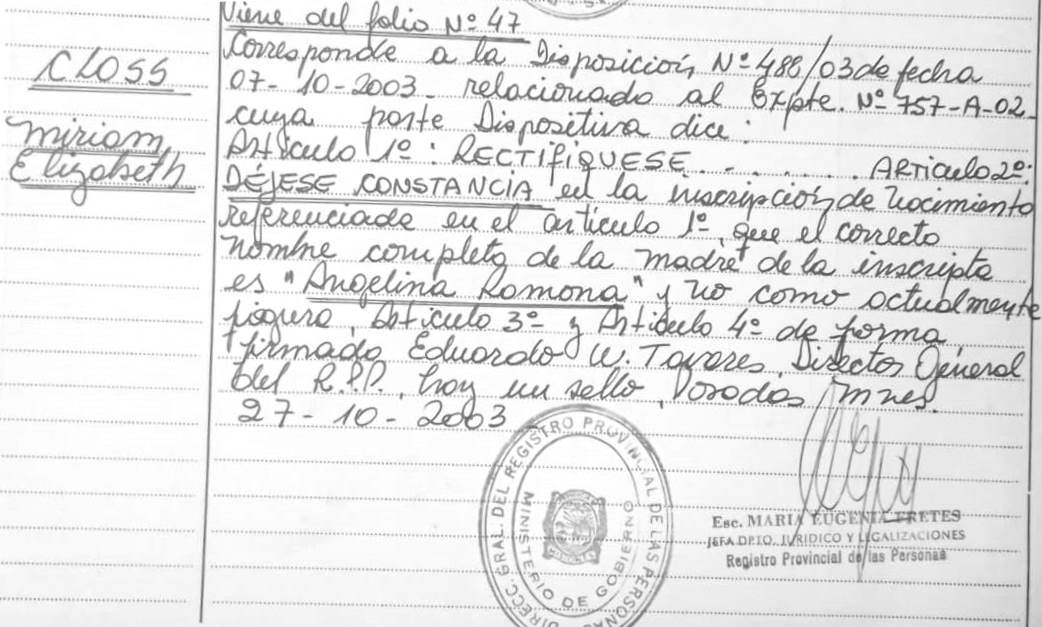 Viene del folio Nº 47
Corresponde a la Disposición Nº 488/03 de fecha
07-10-2003 relacionado al Expte. Nº 757-A-02
cuya parte Dispositiva dice:
Artículo 1º: RECTIFÍQUESE........ ARTiculo 2º:
DÉJESE CONSTANCIA en la inscripción de nacimiento
referenciada en el artículo 1º, que el correcto
nombre completo de la madre de la inscripta
es "Angelina Ramona" y no como actualmente
figura, Artículo 3º y Artículo 4º de forma
firmado Eduardo W. Tavares, Director General
del R.P.P. hay un sello, Posadas, mnes.
27-10-2003
CLOSS
Miriam
Elizabeth
DIRECC. GRAL. DEL REGISTRO PROVINCIAL DE LAS PERSONAS
MINISTERIO DE GOBIERNO
Esc. MARIA EUGENIA FRETES
JEFA DPTO. JURIDICO Y LEGALIZACIONES
Registro Provincial de las Personas